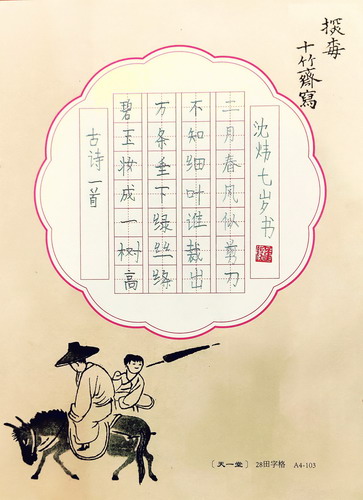 十竹齋寫
古诗一首
碧玉妆成一树高
万条垂下绿丝绦
不知细叶谁裁出
二月春风似剪刀
沈炜七岁书
〔天一堂〕 28田字格 A4-103